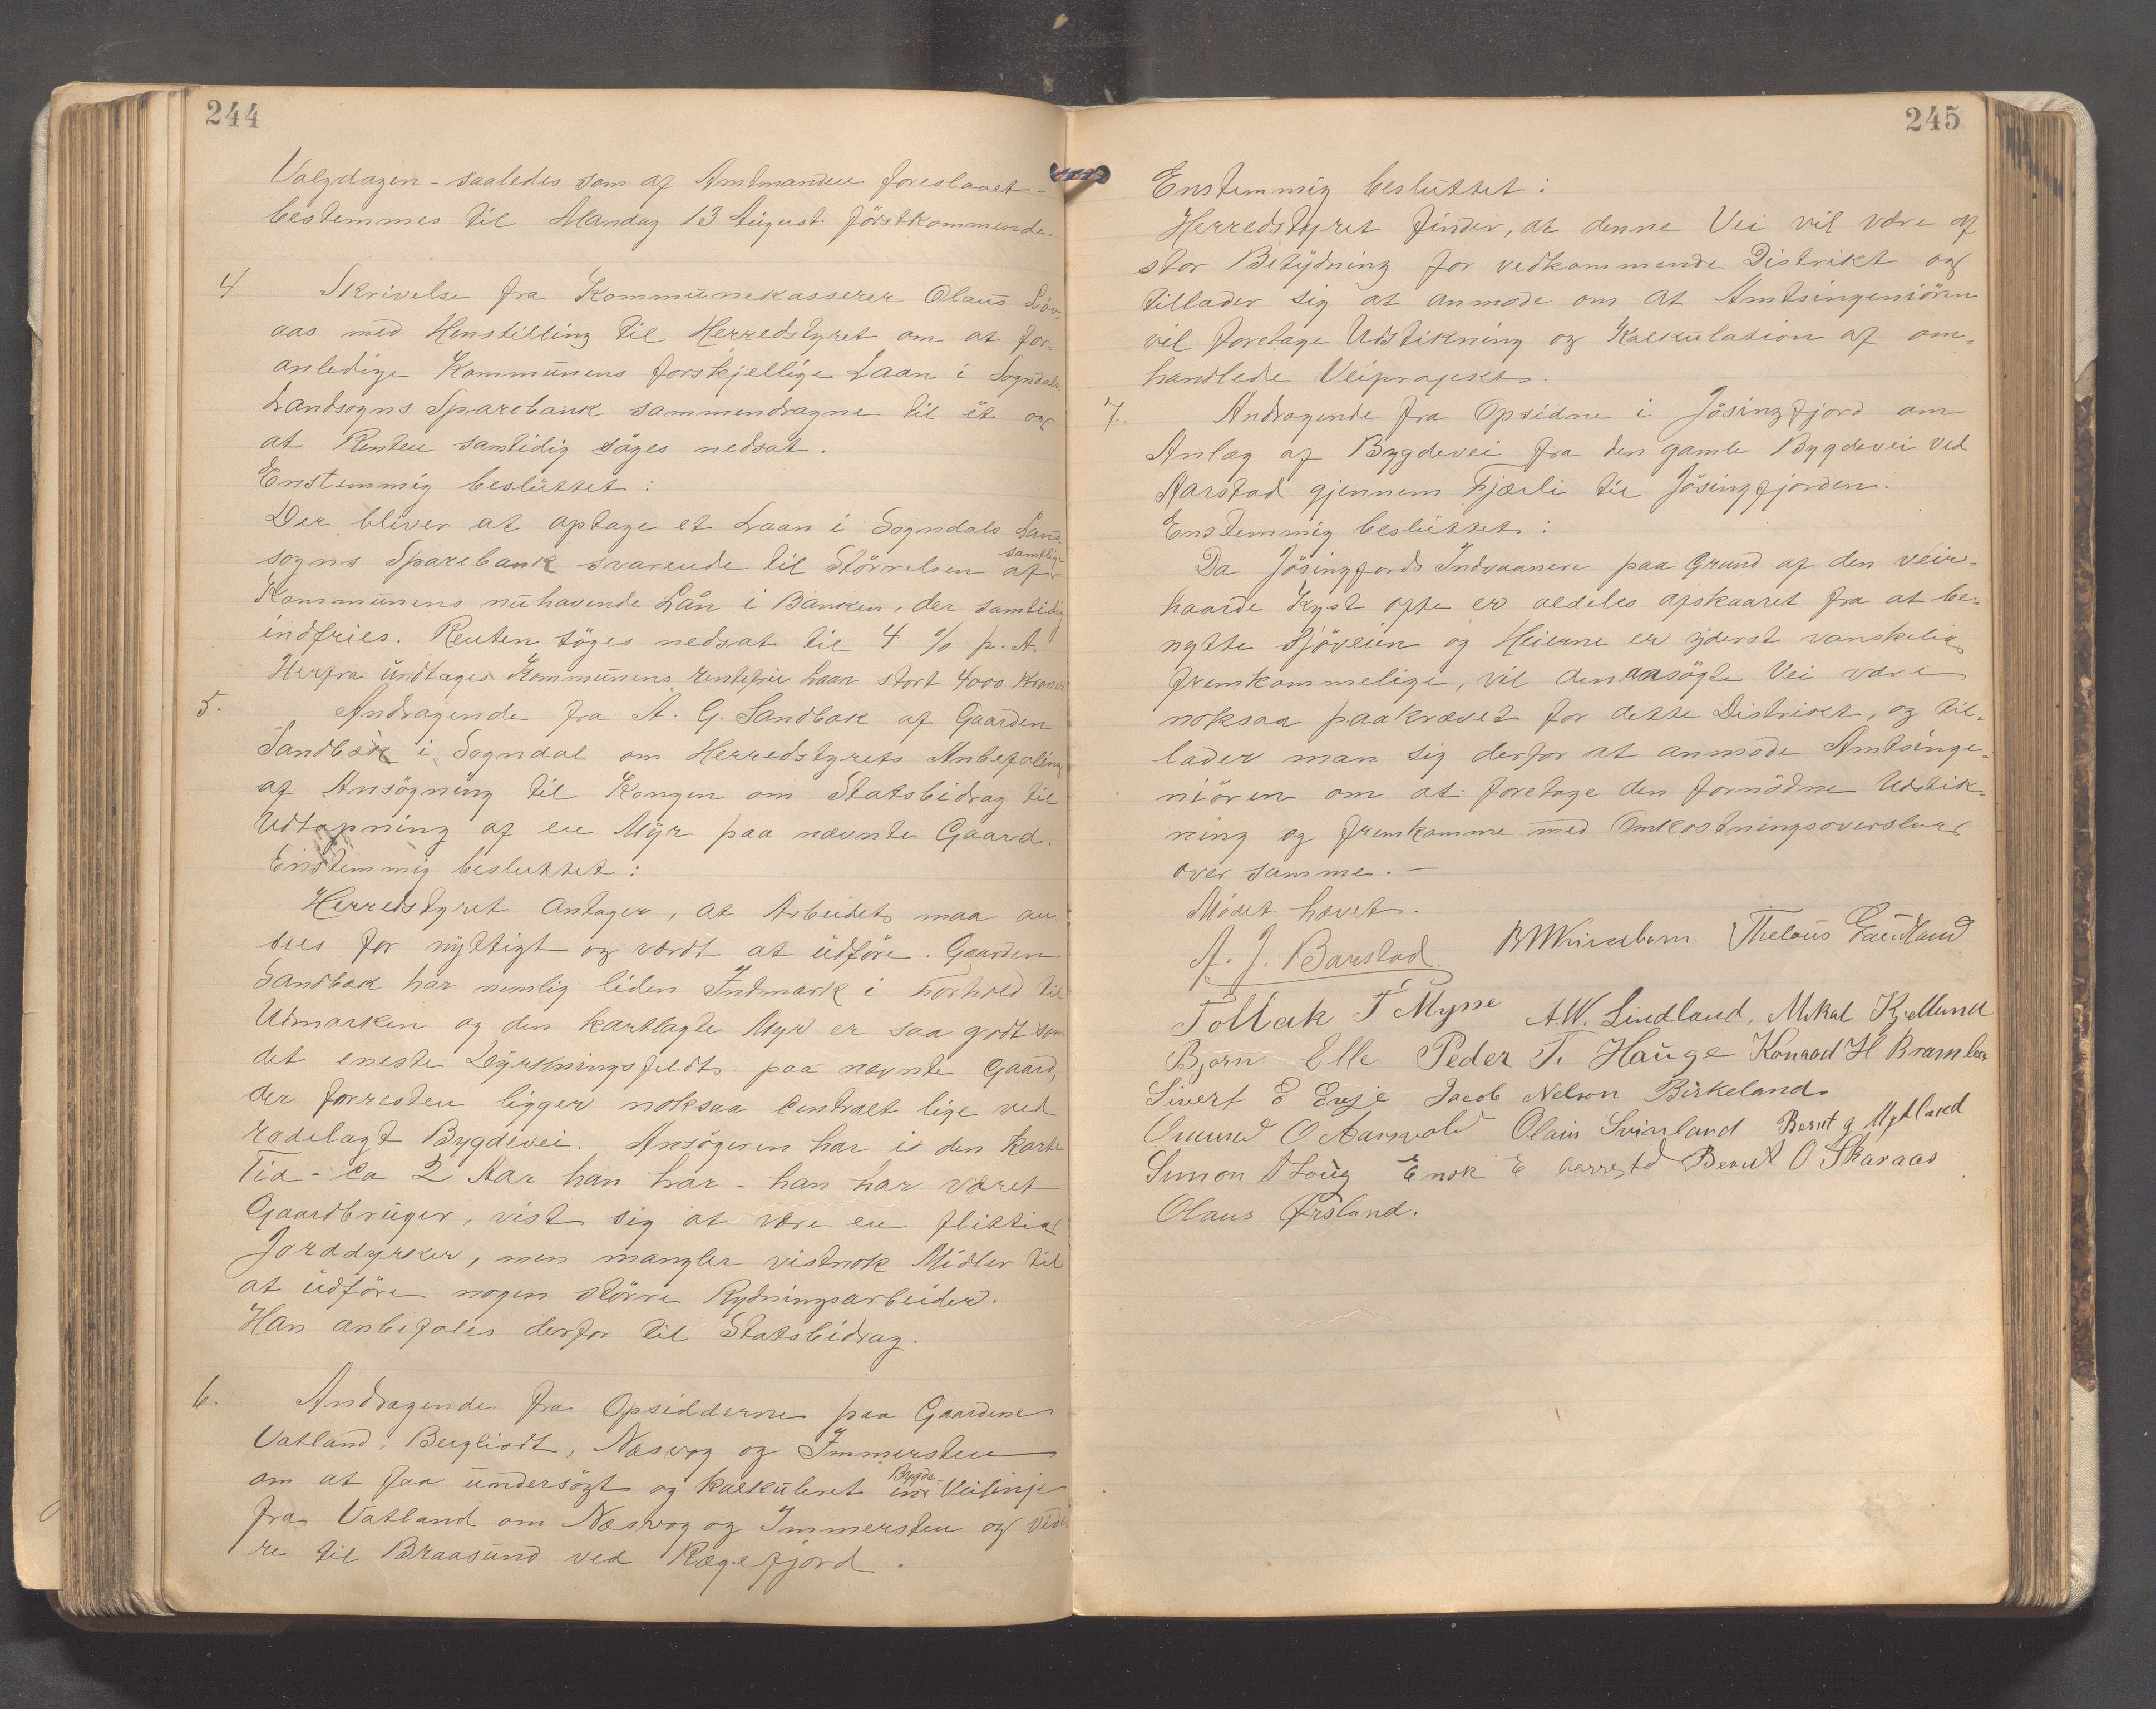 244
Valgdagen - saaledes som af Amtmanden foreslaaet -
bestemmes til Mandag 13 August förstkommende.
4. Skrivelse fra Kommünekasserer Olaüs Löv-
aas med Henstilling til Herredstyret om at for-
anledige Kommünens forskjellige Laan i Sogndals
Landsogns Sparebank sammendragne til ét og
at Renten samtidig söges nedsat.
Enstemmig beslüttet:
Der bliver at optage et Laan i Sogndals Land-
sogns Sparebank svarende til Störrelsen af samtlige
Kommünens nühavende Lån i Banken, der samtidig
indfries. Renten söges nedsat til 4 % p. A.
Herfra ündtages Kommünens rentefrie Laan stort 4000 Kroner
5. Andragende fra A. G. Sandbæk af Gaarden
Sandbæk i Sogndal om Herredstyrets Anbefaling
af Ansögning til Kongen om Statsbidrag til
Udtapning af en Mÿr paa nævnte Gaard.
Enstemmig besluttet:
Herredstyret antager, at Arbeidet maa an-
sees for nÿttigt og værdt at üdföre. Gaarden
Sandbæk har nemlig liden Indmark i Forhold til
Udmarken og den kartlagte Myr er saa godt som
det eneste Dÿrkningsfeldt paa nævnte Gaard,
der forresten ligger noksaa centralt lige ved
rodelagt Bygdevei. Ansögeren har i den korte
Tid - ca 2 Aar han har - han har været
Gaardbrüger, vist sig at være en flittig
Jorddyrker, men mangler vistnok Midler til
at üdföre nogen större Rydningsarbeider.
Han anbefales derfor til Statsbidrag.
6. Andragende fra Opsidderne paa Gaardene
Vatland, Bergliodt, Næsvog og Immersten
om at faa ündersögt og kalküleret en Bygde-Veilinje
fra Vatland om Næsvog og Immersten og vide-
re til Braasünd ved Rægefjord.
245
Enstemmig beslüttet:
Herredstyret finder, at denne Vei vil være af
stor Betÿdning for vedkommende Distrikt og
tillader sig at anmode om at Amtsingeniören
vil foretage Udstikning og Kalkülation af om-
handlede Veiprojekt.
7. Andragende fra Opsidne i Jösingfjord om
Anlæg af Bygdevei fra den gamle Bygdevei ved
Aarstad gjennem Fjærli til Jösingfjorden.
Enstemmig beslüttet:
Da Jösingfjords Indvaanere paa Grund af den veir-
haarde Kyst ofte er aldeles afskaaret fra at be-
nytte Sjöveien og Heierne er ÿderst vanskelig
fremkommelige, vil den ansögte Vei være
noksaa paakrævet for dette Distrikt, og til-
lader man sig derfor at anmode Amtsinge-
niören om at foretage den fornödne Udstik-
ning og fremkomme med Omkostningsoverslag
over samme. -
Mödet hævet.
A. J. Barstad. Thelaüs Frœdland
Tollak T Mysse A. W. Lindland, Mikal Kjelland
Bjørn Elle Peder T. Haüge Konrad H Bramland
Sivert E Evje Jacob Nelson Birkeland
O Aarrvold Olaus Svinland Bernt G Mydland
Simon Enok E Aarrestd Berent O Skaraas
Olaus Ørsland.